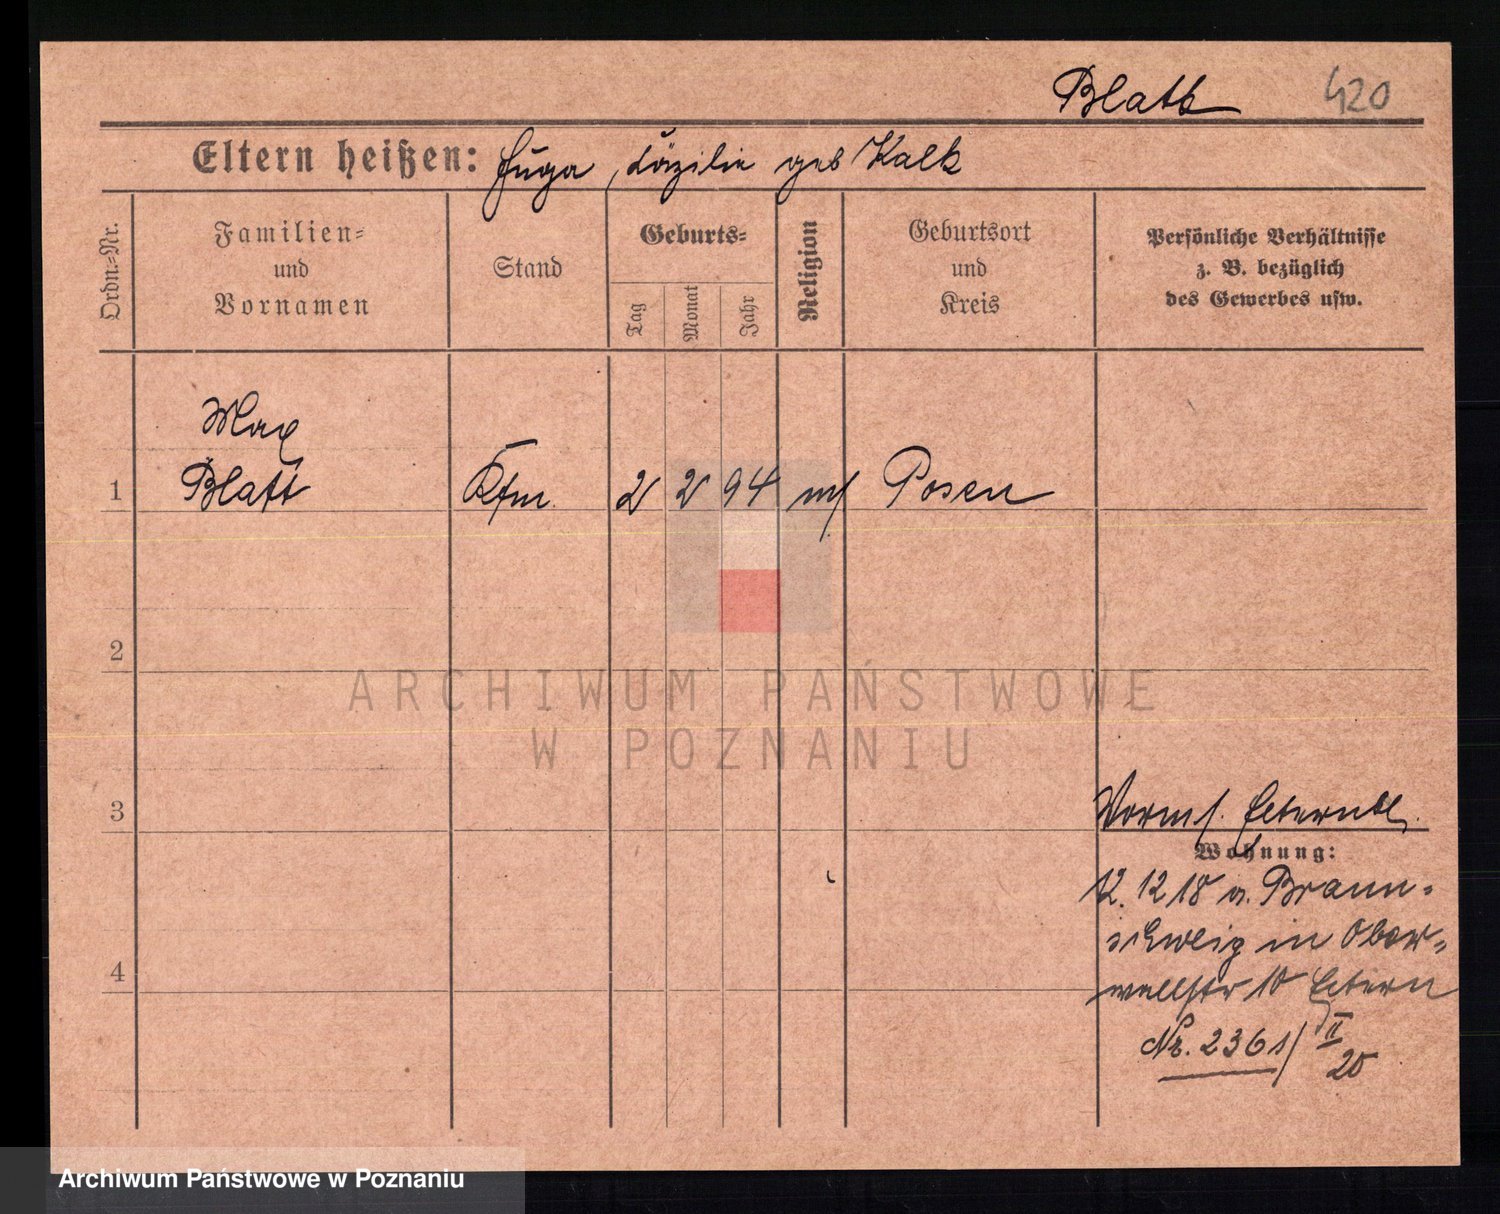 Blatt 420
Eltern heißen: Huga, Cäzilie geb Kalk
Ordn.-Nr.
Familien-
und
Vornamen
Stand
Geburts-
Tag
Monat
Jahr
Religion
Geburtsort
und
Kreis
Persönliche Verhältnisse
z. B. bezüglich
des Gewerbes usw.
Max
1 Blatt Kfm. 2 2 94 Posen
2
ARCHIWUM PAŃSTWOWE
W POZNANIU
3
Wohnung:
12. 12 18 a. Braun-
schweig in Ober-
wallstr 10 Eltern
4
Nr. 2361/ II
20
Archiwum Państwowe w Poznaniu